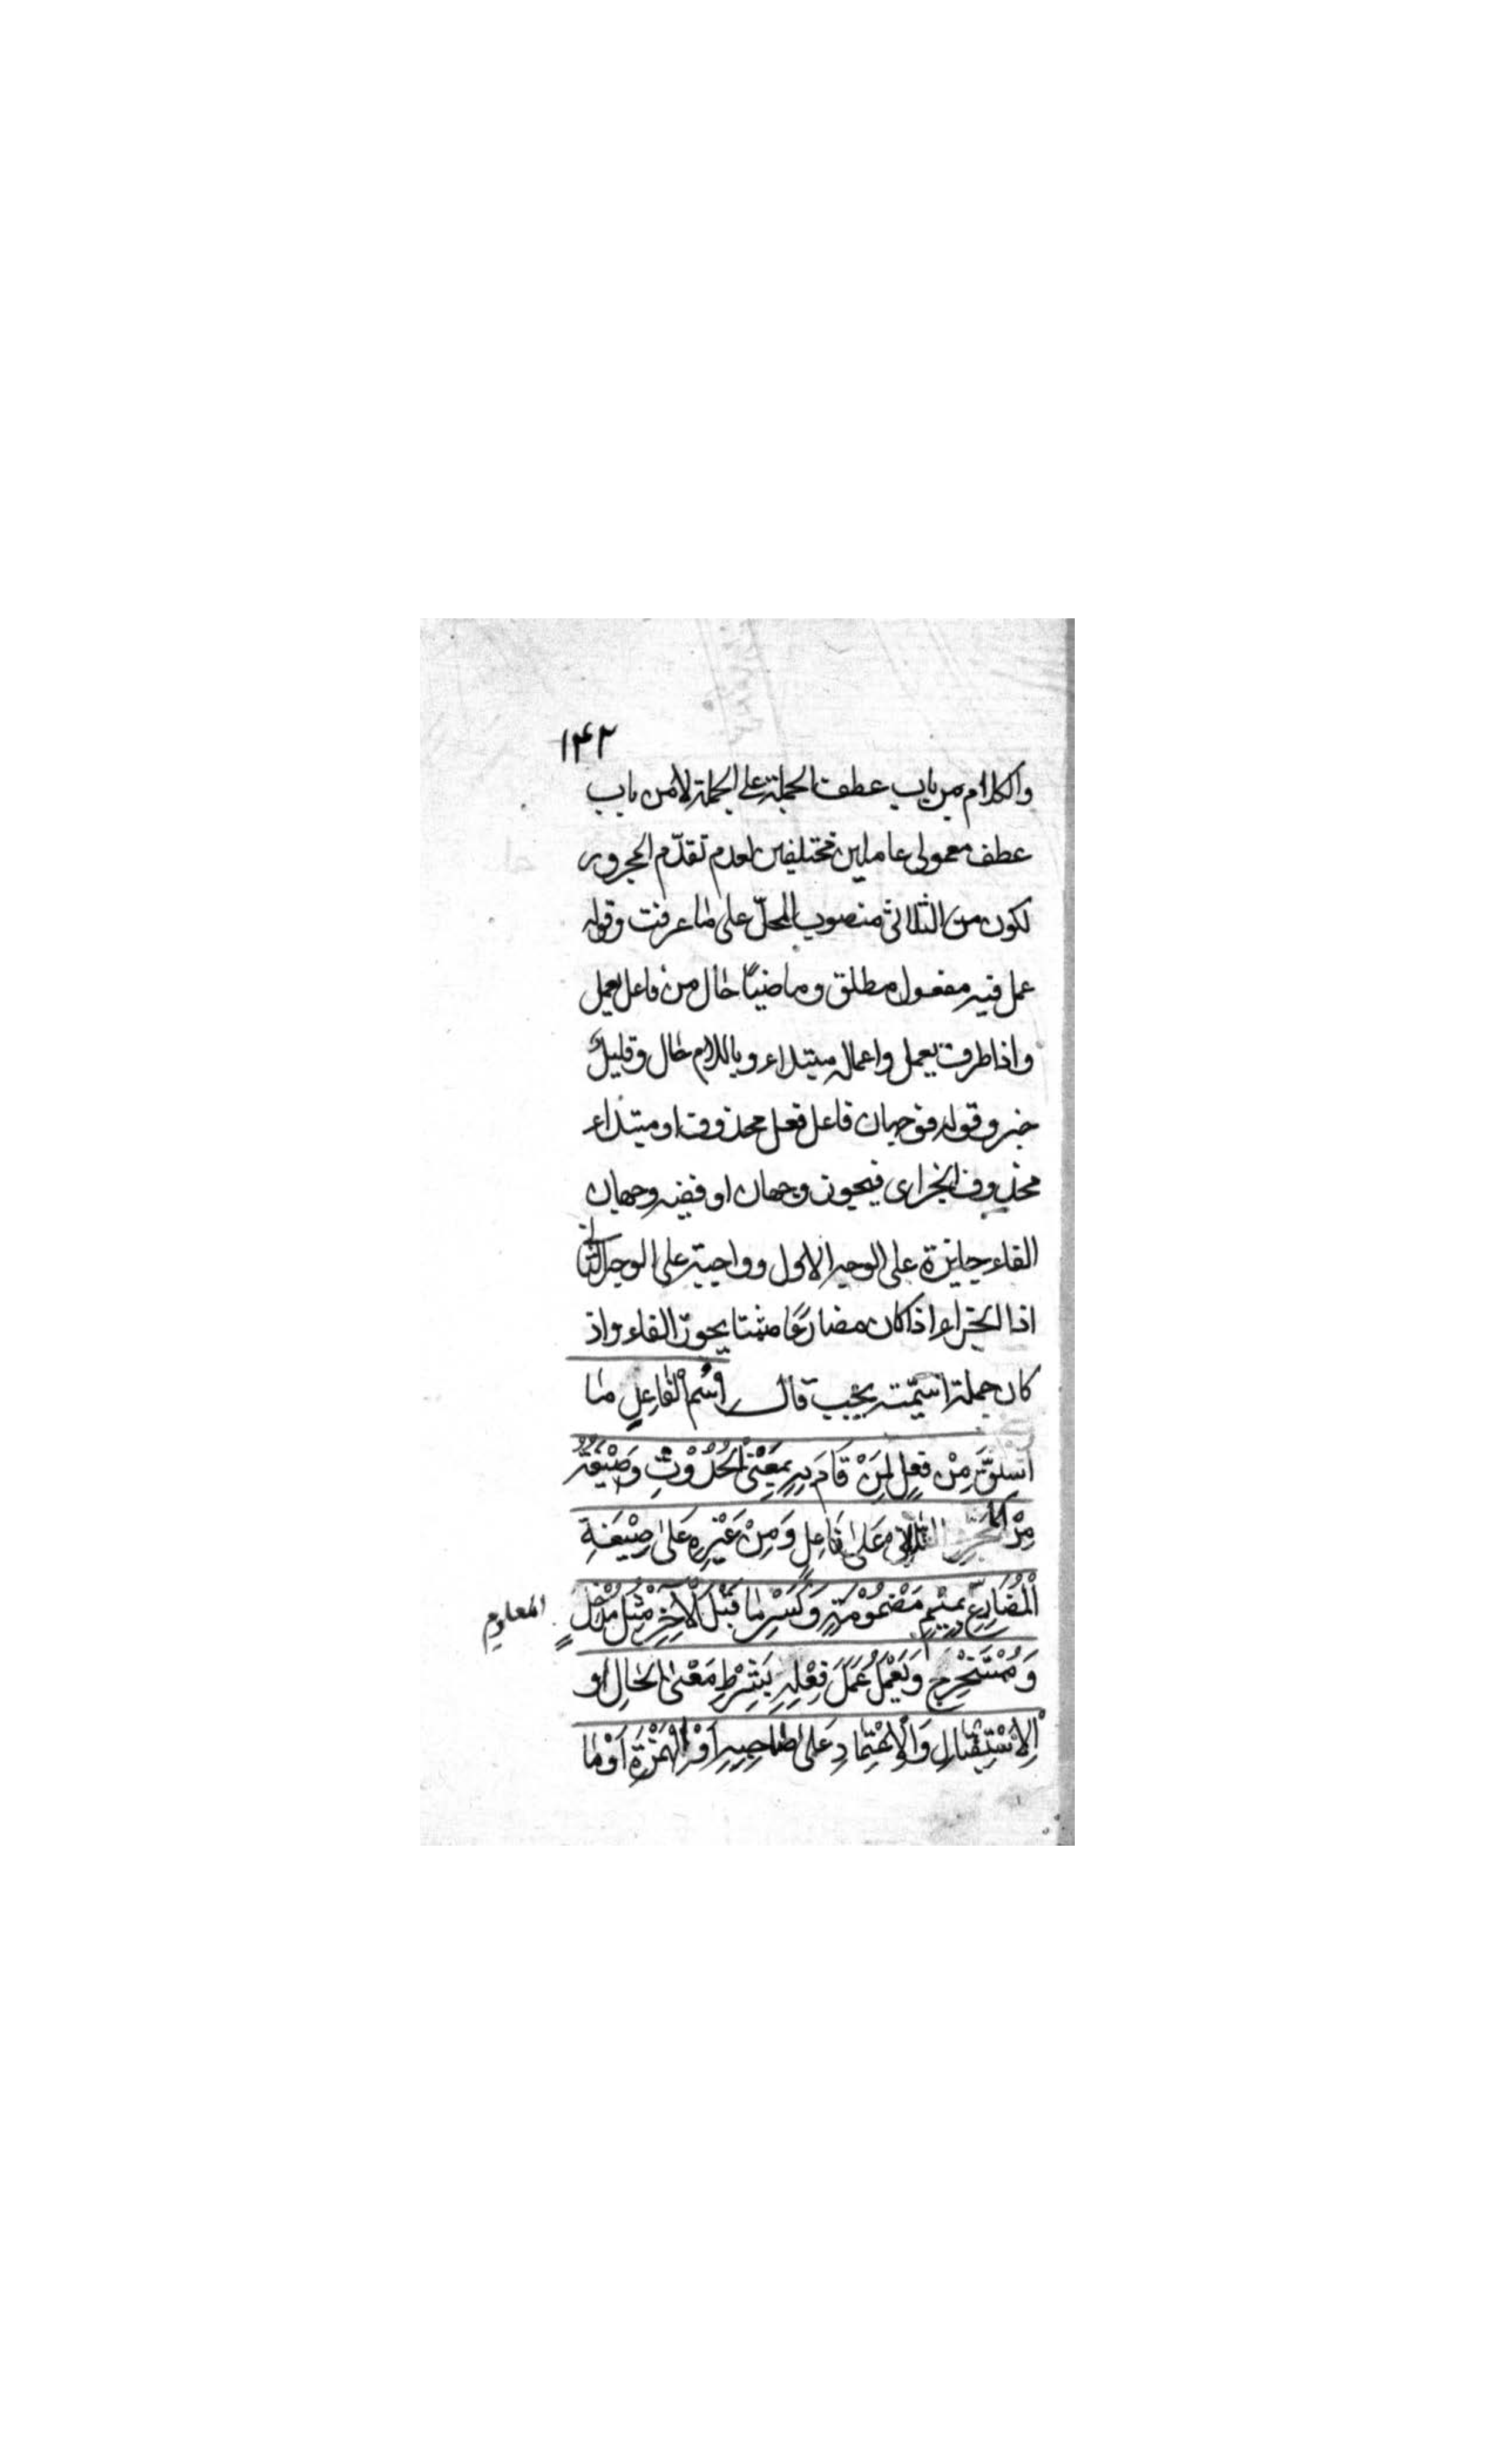 ١۴٢
والكلام من باب عطف الجملة على الجملة لا من باب
عطف معمولى عاملين مختلفين لعدم تقدّم المجرور
لكون من الثلاثى منصوب المحلّ على ما عرفت وقوله
عمل فيه مفعول مطلق وماضيًا حال من فاعل يعمل
واذا ظرف يعمل واعماله مبتداء وباللام حال وقليلٌ
خبر وقوله فوجهان فاعل فعل محذوف او مبتداء
محذوف الخبر اى فيجوز وجهان او ففيه وجهان
الفاء جايزة على الوجه الاول وواجبة على الوجه الثانى
اذا الجزاء اذا كان مضارعًا مثبتا يجوز الفاء واذ
كان جملة اسميّته يجب قال اِسْمُ الْفاعِلِ ما
اُشْتُقَّ مِنْ فِعْلٍ لِمَنْ قَامَ بِهِ بِمَعْنَى الْحُدُوْثِ وَصِيْغَتُهُ
مِنَ الْمُجَرَّدِ الثلاثى عَلىٰ فَاعِلٍ وَمِنْ غَيْرِهِ عَلىٰ صِيْغَةِ
الْمُضَارِعِ بِمِيْمٍ مَضْمُوْمَةٍ وَكَسْرِ ما قَبْلَ الْآخِرِ مِثْلُ مُدْخِلٍ
المعلوم
وَمُسْتَخْرِجٍ وَيَعْمَلُ عَمَلَ فِعْلِهِ بِشَرْطِ مَعْنىَ الْحالِ او
الْاِسْتِقْبَالِ وَالْاِعْتِمادِ عَلىٰ صاحِبِهِ اَوْ الْهَمْزَةِ اَوْ ما